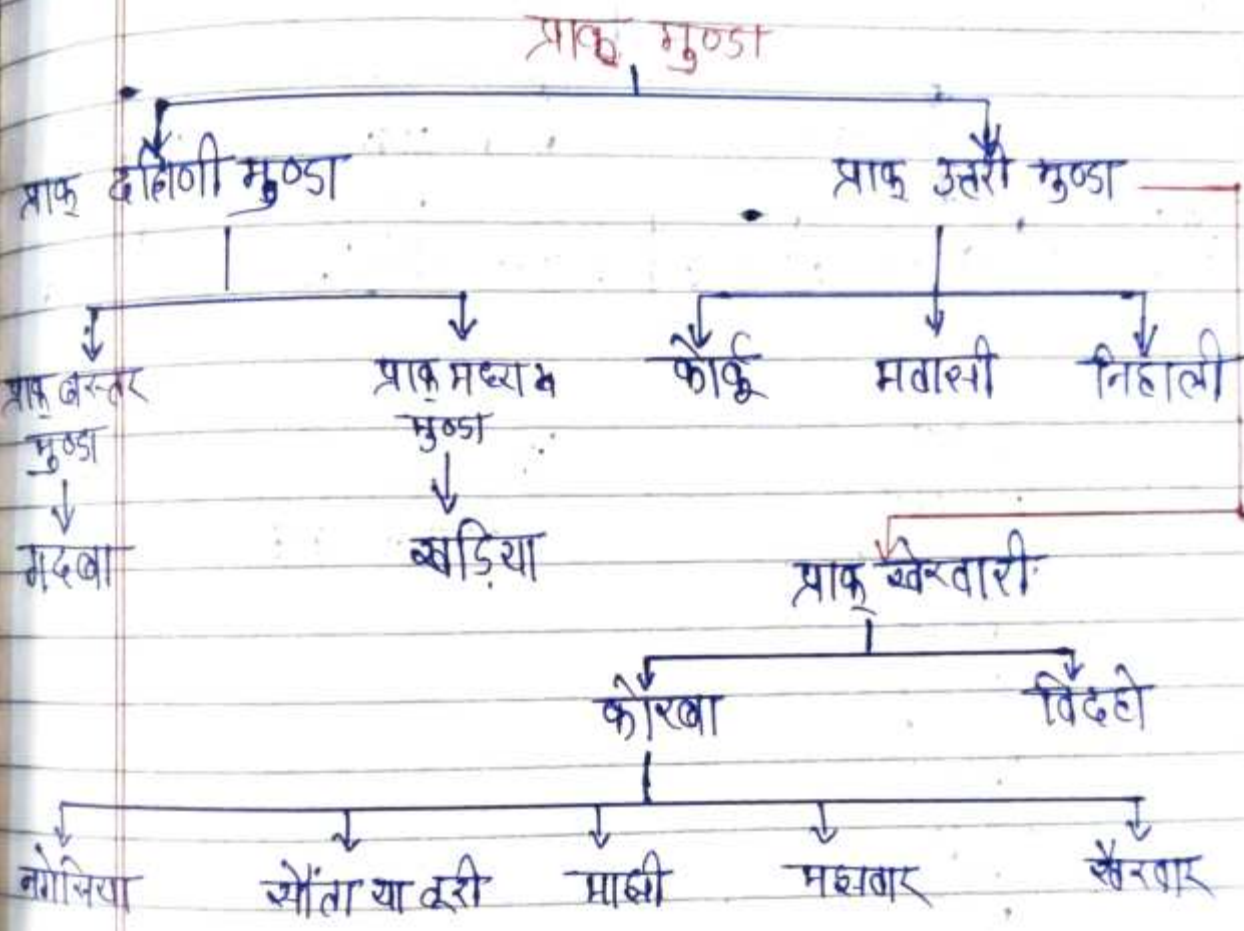 प्राक् मुण्डा
प्राक् दक्षिणी मुण्डा प्राक् उत्तरी मुण्डा
प्राक् बस्तर प्राक् मध्य मुण्डा कोर्कू मवासी निहाली
मुण्डा
गदबा खड़िया
प्राक् खेरवारी
कोरबा विदहो
नगेसिया सौंता या तूरी माझी मझवार खैरवार